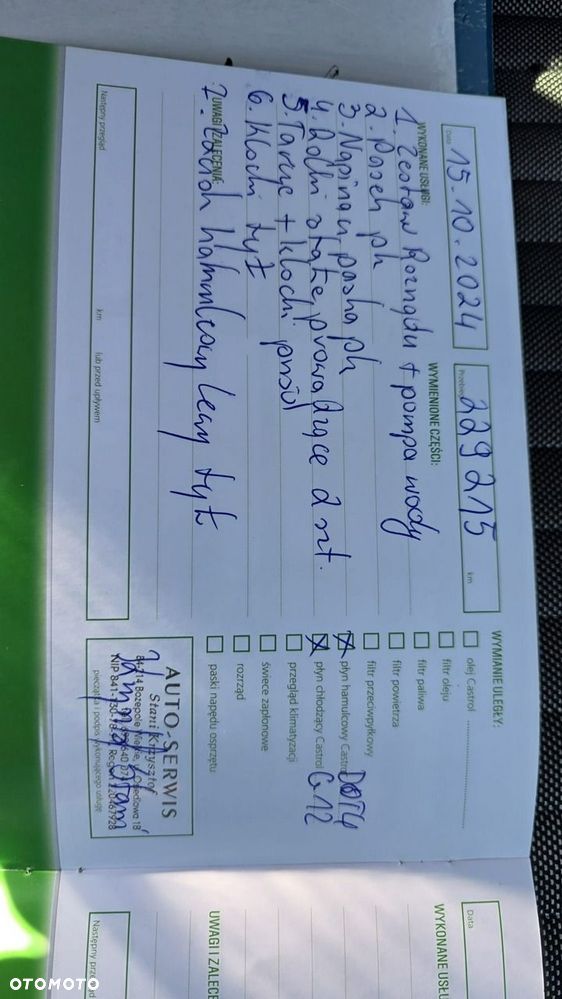 Data 15.10.2024
Przebieg 229 215 km
WYKONANE USŁUGI:
WYMIENIONE CZĘŚCI:
1. Zestaw Rozrządu + pompa wody
2. Pasek pk
3. Napinacz paska pk
4. Rolki stałe prowadzące 2 szt.
5. Tarcze + klocki przód
6. Klocki tył
UWAGI I ZALECENIA:
7. Zacisk hamulcowy lewy tył
Następny przegląd
km
lub przed upływem
WYMIANIE ULEGŁY:
olej Castrol
filtr oleju
filtr paliwa
filtr powietrza
filtr przeciwpyłkowy
płyn hamulcowy Castrol DOT4
płyn chłodzący Castrol G12
przegląd klimatyzacji
świece zapłonowe
rozrząd
paski napędu osprzętu
AUTO-SERWIS
Stani Krzysztof
pieczątka i podpis wykonującego usługę
Data
WYKONANE USŁU
UWAGI I ZALECE
Następny prze
OTOMOTO